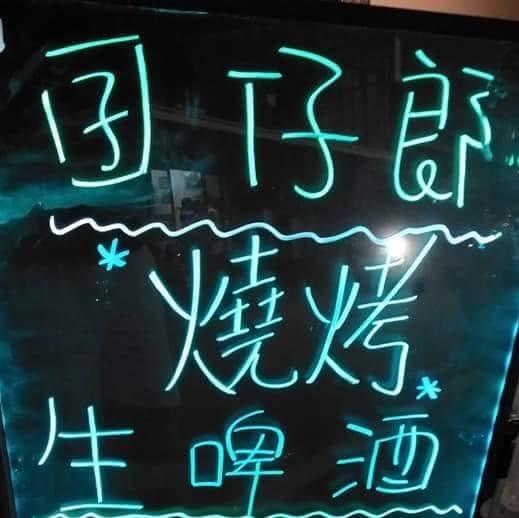 囝仔郎
*燒烤*
生啤酒